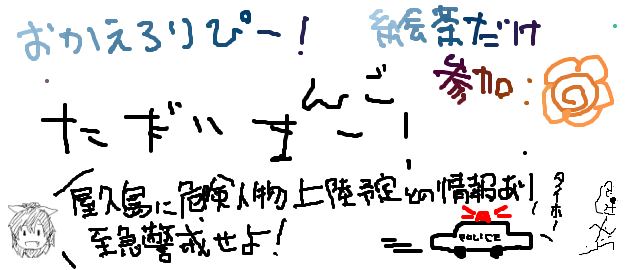 おかえろりぴー！
絵茶だけ
参加
ただいまんご！
屋久島に危険人物上陸予定との情報あり
至急警戒せよ！
タイホー！
POLICE